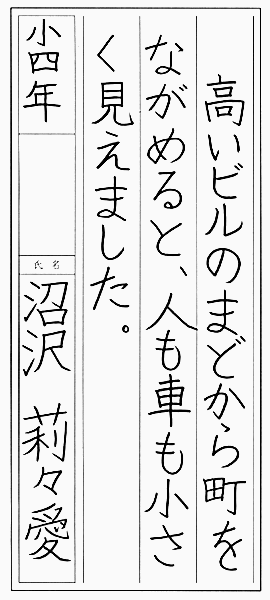 高いビルのまどから町を
ながめると、人も車も小さ
く見えました。
小四年
氏名
沼沢 莉々愛